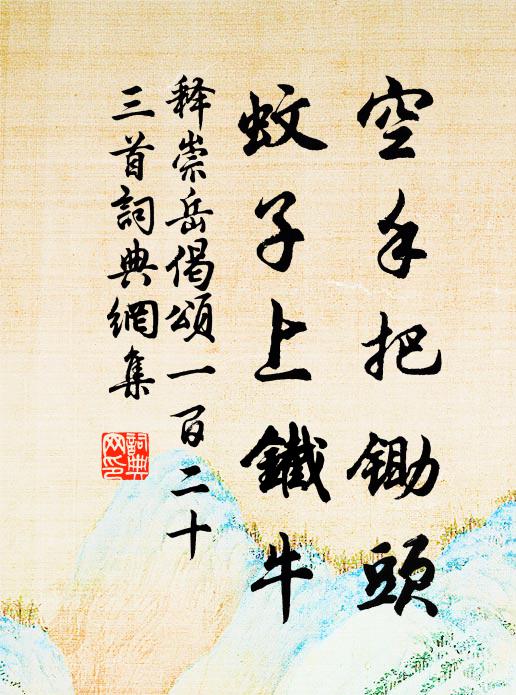 空手把鋤頭
蚊子上鐵牛
释崇岳偈頌一百二十
三首詞典網集
詞典
网印